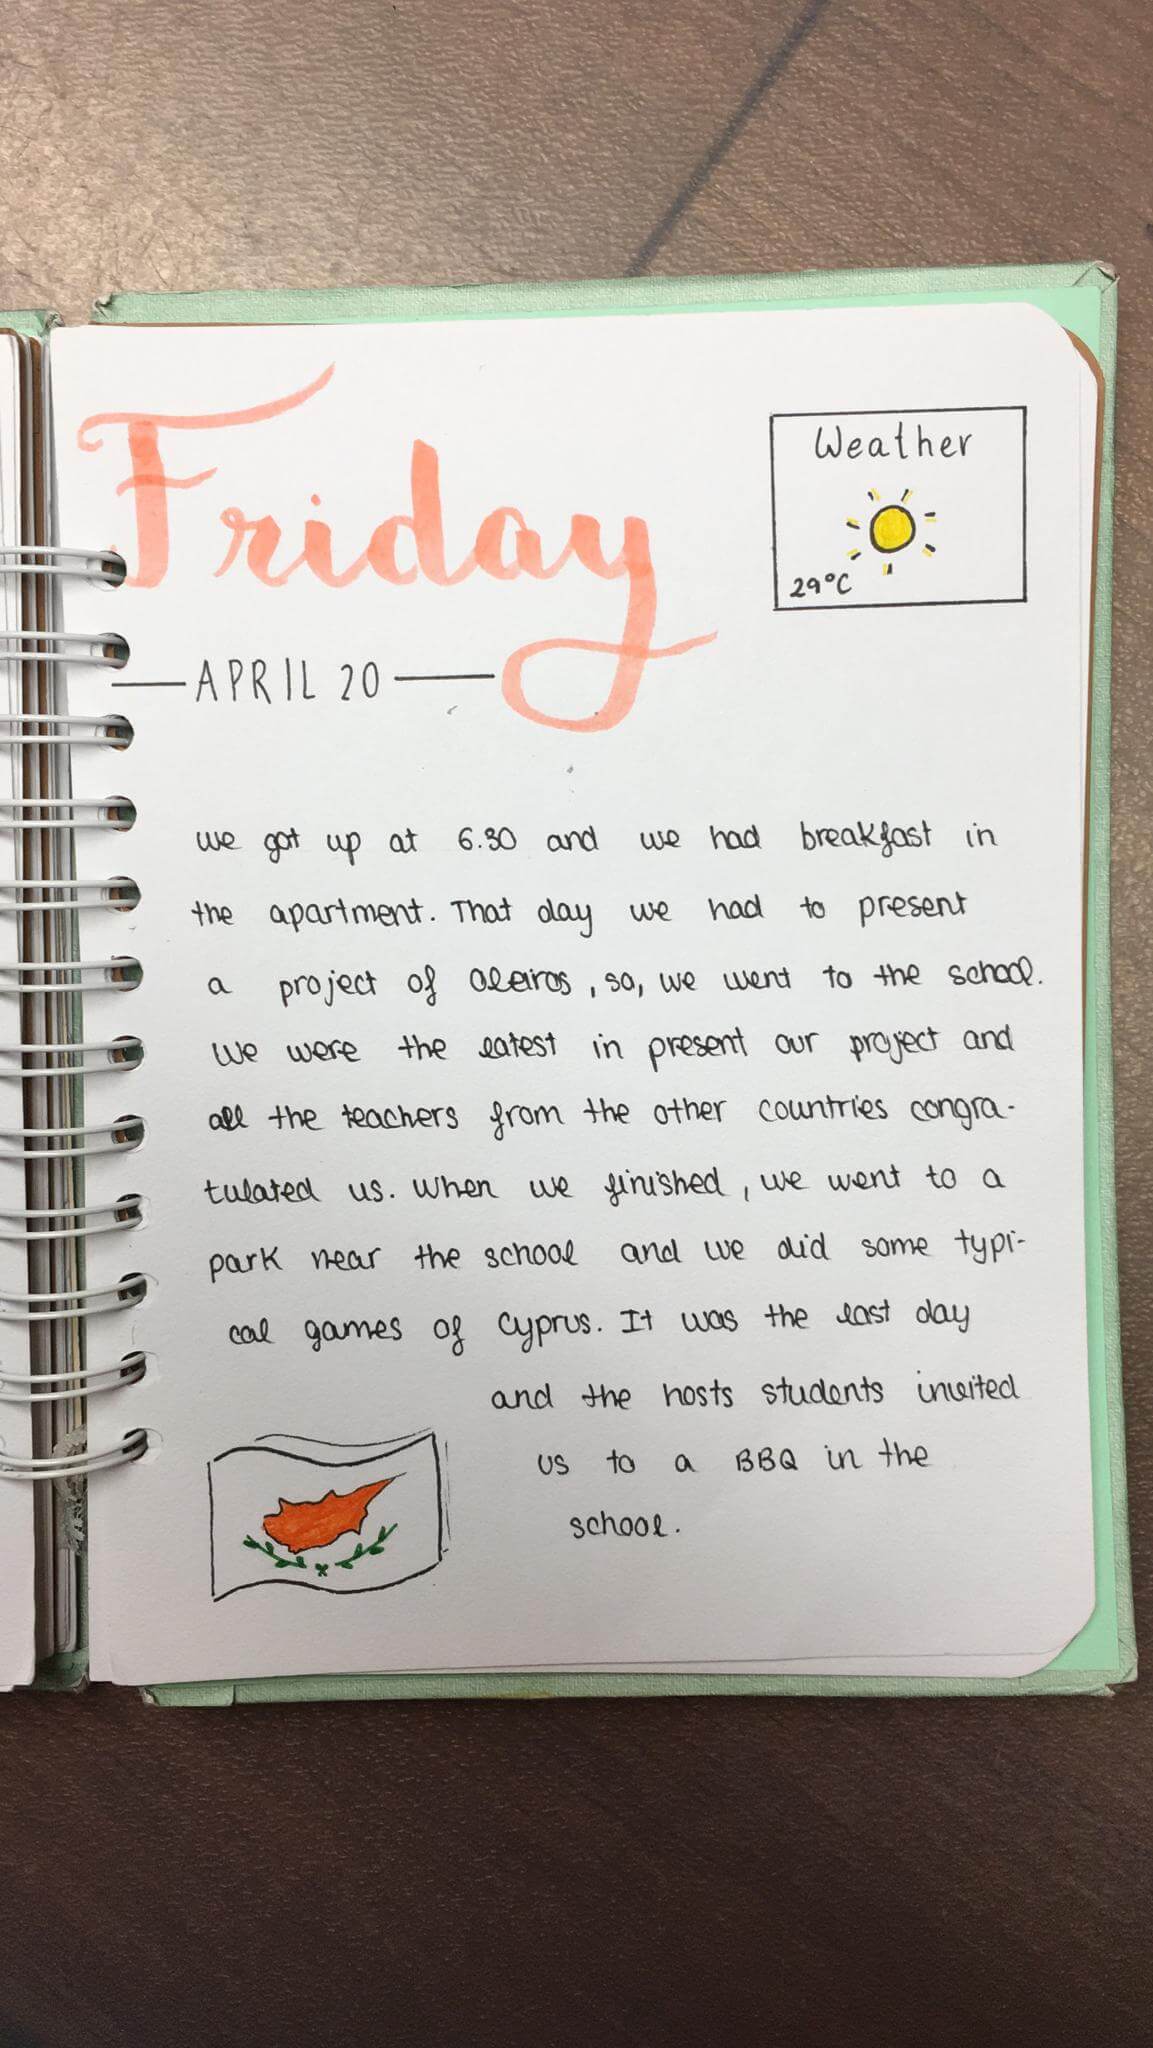 Friday
Weather
29°C
APRIL 20
we got up at 6.30 and we had breakfast in
the apartment. That day we had to present
a project of Oleiros, so, we went to the school.
We were the latest in present our project and
all the teachers from the other countries congra-
tulated us. When we finished, we went to a
park near the school and we did some typi-
cal games of Cyprus. It was the last day
and the hosts students invited
us to a BBQ in the
school.